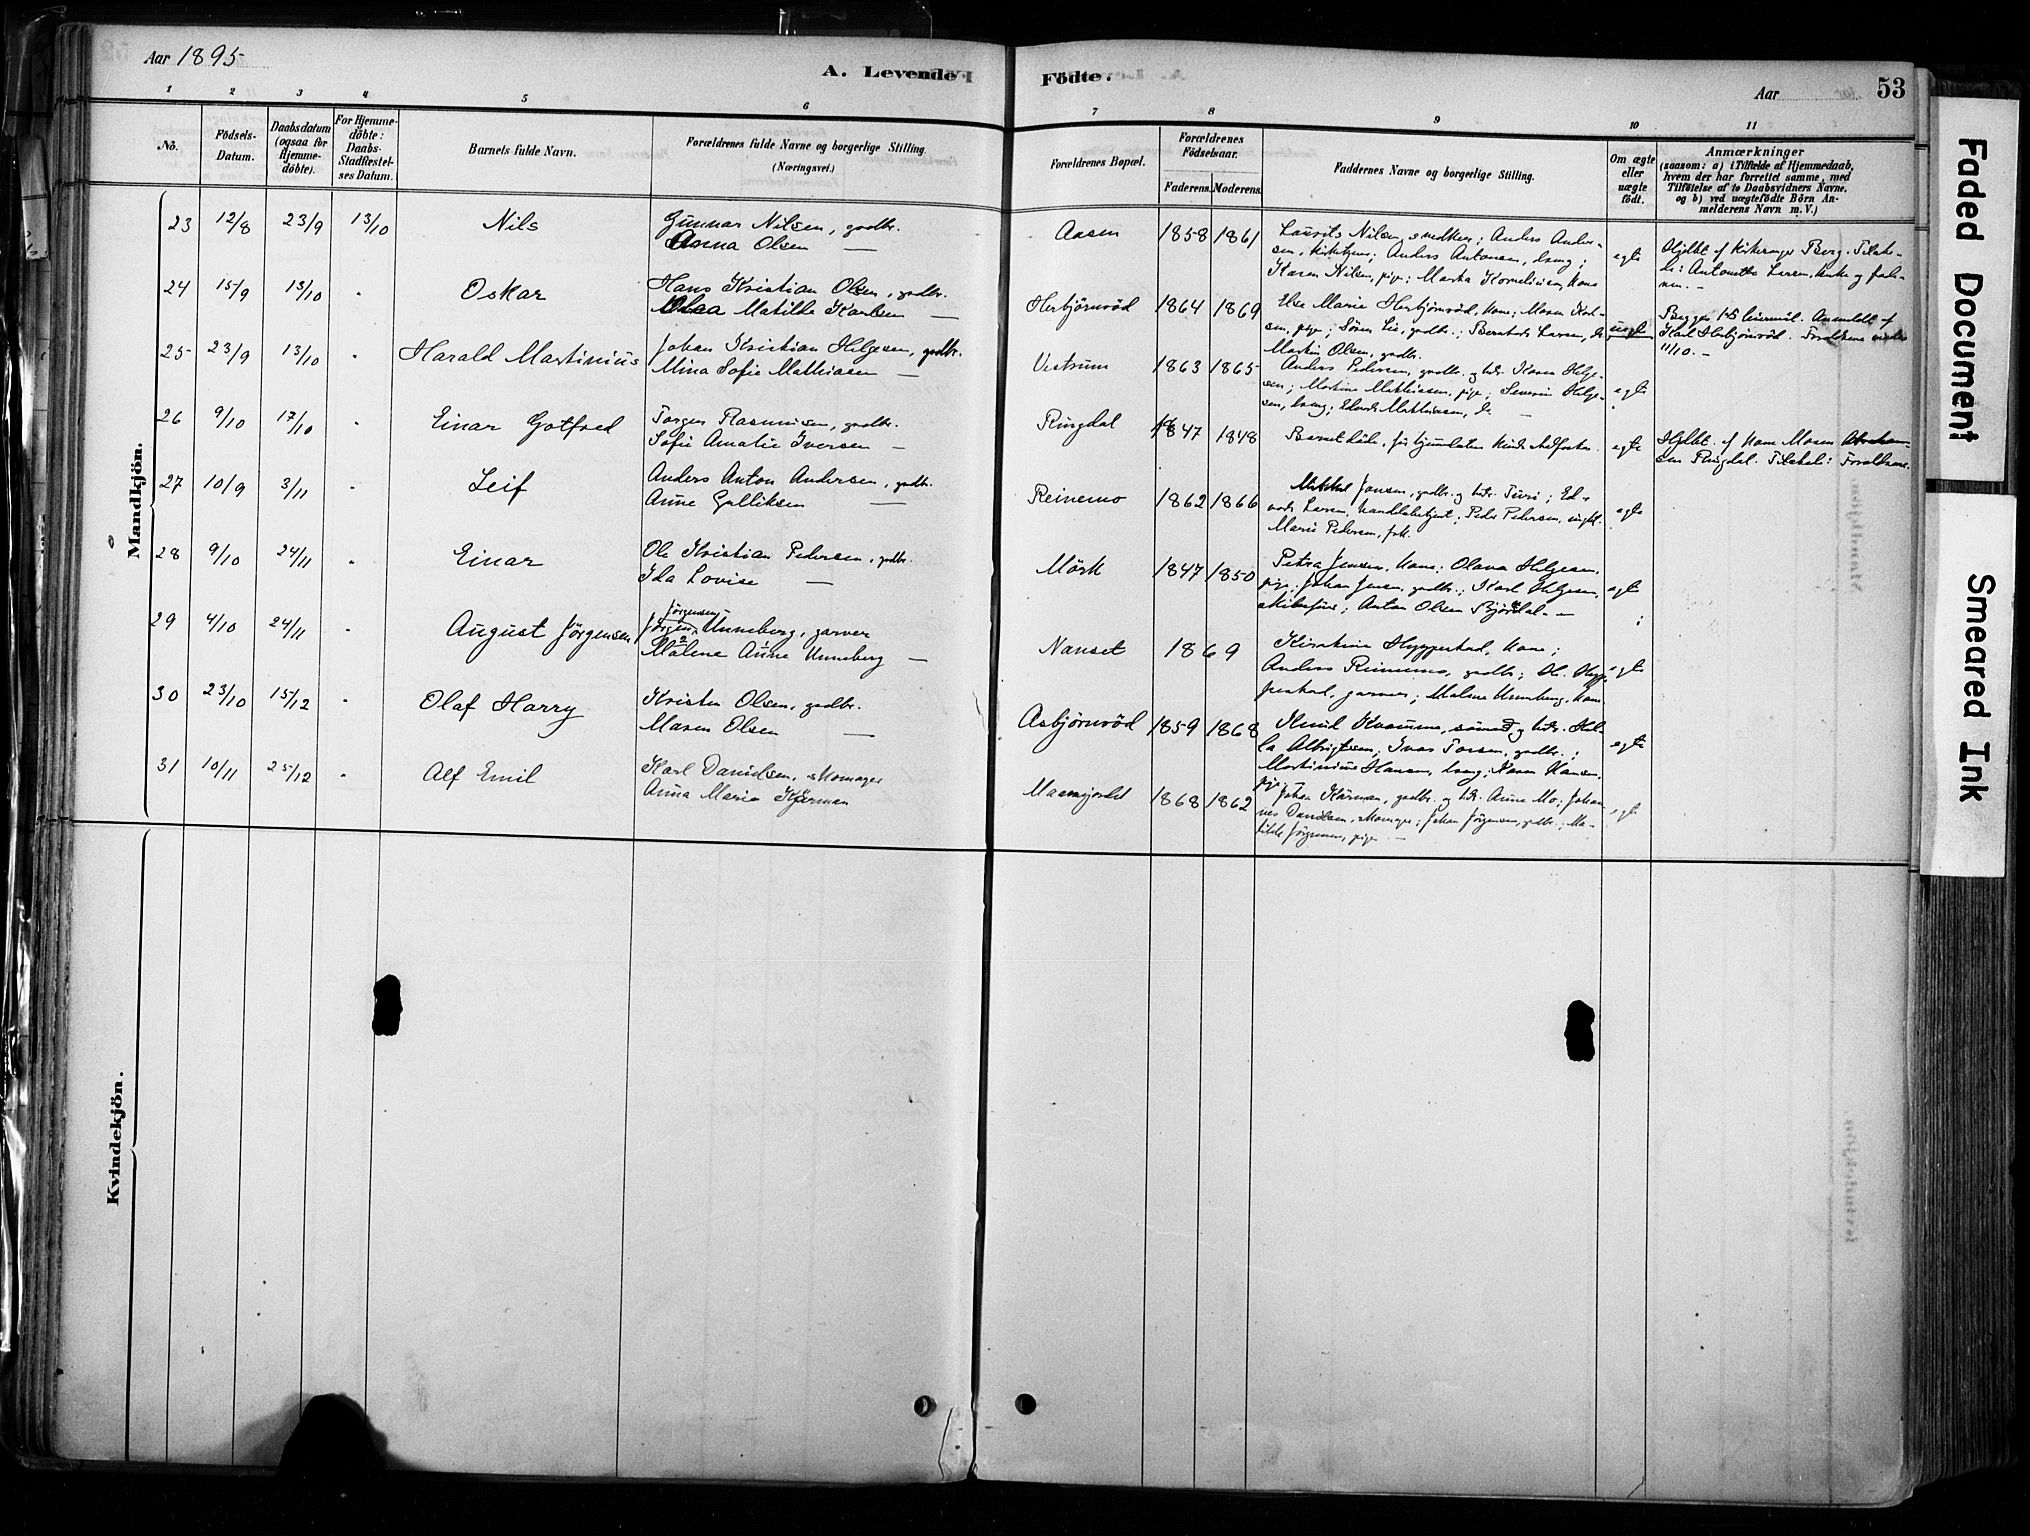 Aar 1895
A. Levende Födte.
Aar
53
1 2 3 4 5 6 7 8 9 10 11
No.
Födsels-
Datum.
Daabsdatum
(ogsaa for
Hjemme-
döbte).
For Hjemme-
döbte:
Daabs-
Stadfæstel-
ses Datum.
Barnets fulde Navn.
Forældrenes fulde Navne og borgerlige Stilling.
(Næringsvei.)
Forældrenes Bopæl.
Forældrenes
Födselsaar.
Faderens. Moderens.
Faddernes Navne og borgerlige Stilling.
Om ægte
eller
uægte
födt.
Anmærkninger
(saasom: a) i Tilfælde af Hjemmedaab,
hvem der har forrettet samme, med
Tilföielse af to Daabsvidners Navne.
og b) ved uægtefödte Börn An-
melderens Navn m. V.)
Mandkjön.
23 12/8 23/9 13/10 Nils
Gunnar Nilsen, gadbr.
Anna Olsen —
Aasen 1858 1861
Laurits Nilsen, snedker; Anders Ander-
sen, kirketjener; Anders Antonsen, ;
Karen Nilsen, pige; Martha Kornelius, kone
egte
24 15/9 13/10 " Oskar
Hans Kristian Olsen, gadbr.
Olea Matilde Karlsen —
Herbjørnrød 1864 1869
Else Marie Herbjörnröd, kone; Maren Karl-
sen, pige; Sören Lie, gadbr.; Larsen, do
Martin Olsen, gadbr.
uegte
Begges 1ste leiermål. Anmeldt af
Karl Herbjörnröd. Foreldrene
11/10. —
25 23/9 13/10 " Harald Martinius
Johan Kristian Helgesen, gadbr.
Mina Sofie Mathiasen —
Vestrum 1863 1865
Anders Pedersen, gadbr. og hstr. Karen Helge-
sen; Martine Mathiassen, pige; Severin Helge-
sen, ; Edvard Mathiassen, do. —
egte
26 9/10 17/10 " Einar Gotfred
Torger Rasmusen, gadbr.
Sofie Amalie Iversen —
Ringdal 1847 1848
egte
Hjdbt. af kone Maren Abraham-
sen Ringdal. Tilstede: Foreldrene.
27 10/9 3/11 " Leif
Anders Anton Andersen, gadbr.
Anne Gulliksen —
Reinemo 1862 1866
Mikkel Jansen, gadbr. og hstr. Turi; Ed-
vard Larsen, handelsbetjent; Peder Pedersen, ungk.
Marie Pedersen, frk.
egte
28 9/10 24/11 " Einar
Ole Kristian Pedersen, gadbr.
Ida Lovise —
Mörk 1847 1850
Petra Jensen, kone; Olava Helgesen,
pige; Johan Jensen, gadbr.; Karl Helgesen,
skibsförer; Anton Olsen Björdal. —
egte
29 4/10 24/11 " August Jörgensen
Jörgensen
Jörgen Unneberg, garver
Malene Anne Unneberg —
Nanset 1869
Kirstine Hyppestad, kone;
Anders Reinemo, gadbr.; Ol. Hyp-
pestad, garver; Malene Unneberg, kone
egte
30 23/10 15/12 " Olaf Harry
Kristen Olsen, gadbr.
Maren Olsen —
Asbjørnrød 1859 1868
Knud Kvaume, sömand og hstr. Hel-
la Albrigtsen; Ivar Torsen, gadbr.;
Martinius Hansen, ; Karen Hansen,
pige
egte
31 10/11 25/12 " Alf Emil
Karl Danielsen, skomager
Anna Marie Kjerman
1868 1862
Johan Kärman, gadbr. og hstr. Anne Mo; Johan-
nes Danielsen, skomager; Johan Jörgensen, gdbr.; Ma-
tilde Jörgensen, pige —
egte
Kvindekjön.
Faded Document
Smeared Ink